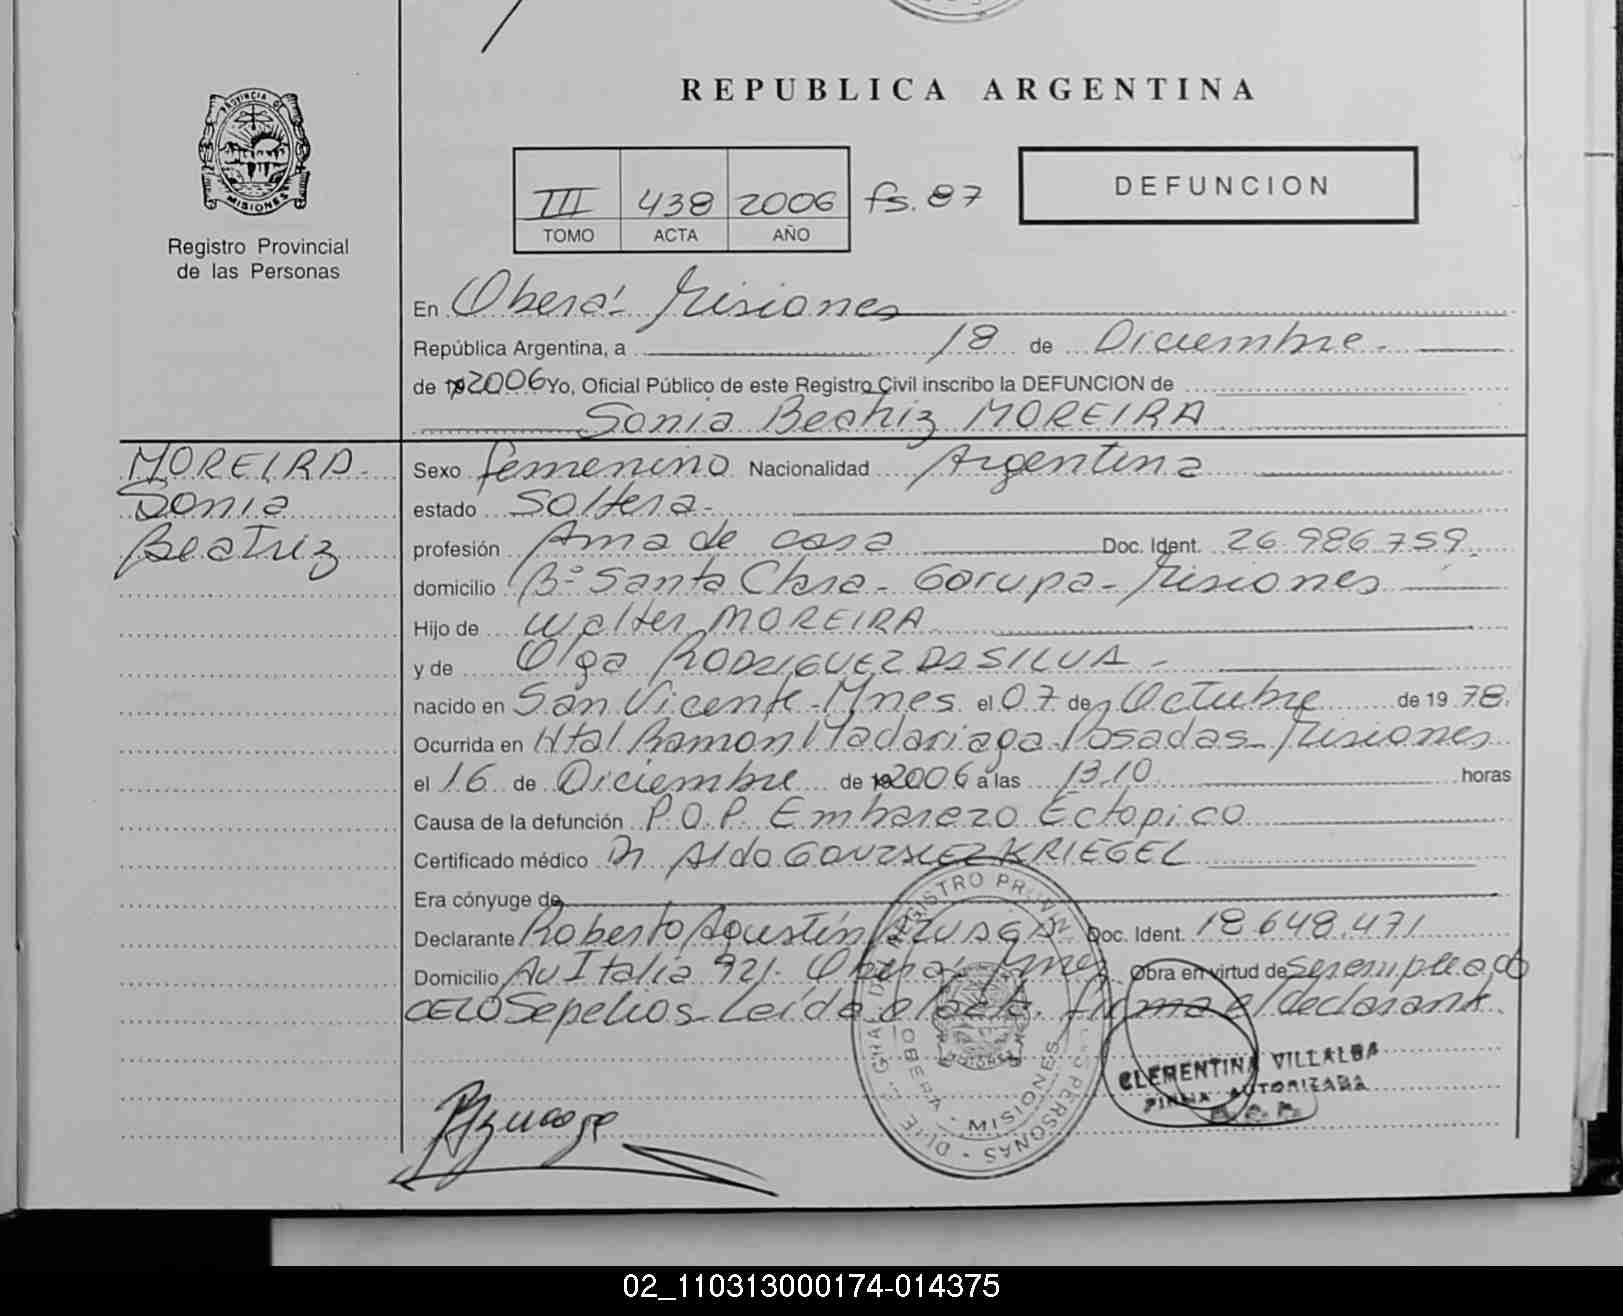 PROVINCIA DE
MISIONES
Registro Provincial
de las Personas
REPUBLICA ARGENTINA
III 438 2006 fs. 87
TOMO ACTA AÑO
DEFUNCION
En Oberá - Misiones
República Argentina, a 18 de Diciembre.
de 19 2006 Yo, Oficial Público de este Registro Civil inscribo la DEFUNCION de
Sonia Beatriz MOREIRA
MOREIRA.
Sonia
Beatriz
Sexo femenino Nacionalidad Argentina
estado Soltera.
profesión Ama de casa Doc. Ident. 26.986.759.
domicilio Bº Santa Clara - Garupa - Misiones
Hijo de Walter MOREIRA
y de Olga RODRIGUEZ DA SILVA -
nacido en San Vicente - Mnes. el 07 de Octubre de 1978.
Ocurrida en Htal Ramon Madariaga - Posadas - Misiones
el 16 de Diciembre de 19 2006 a las 13,10 horas
Causa de la defunción P.O.P. Embarazo Ectopico
Certificado médico Dr. Aldo GONZALEZ KRIEGEL
Era cónyuge de
Declarante Roberto Agustín Doc. Ident. 18.648.471
Domicilio Av Italia 921. Oberá - Mnes Obra en virtud de ser empleado
Sepelios. Leída el acta. firma el declarante.
OBERA - MISIONES
CLEMENTINA VILLALBA
FIRMA AUTORIZADA
02_110313000174-014375